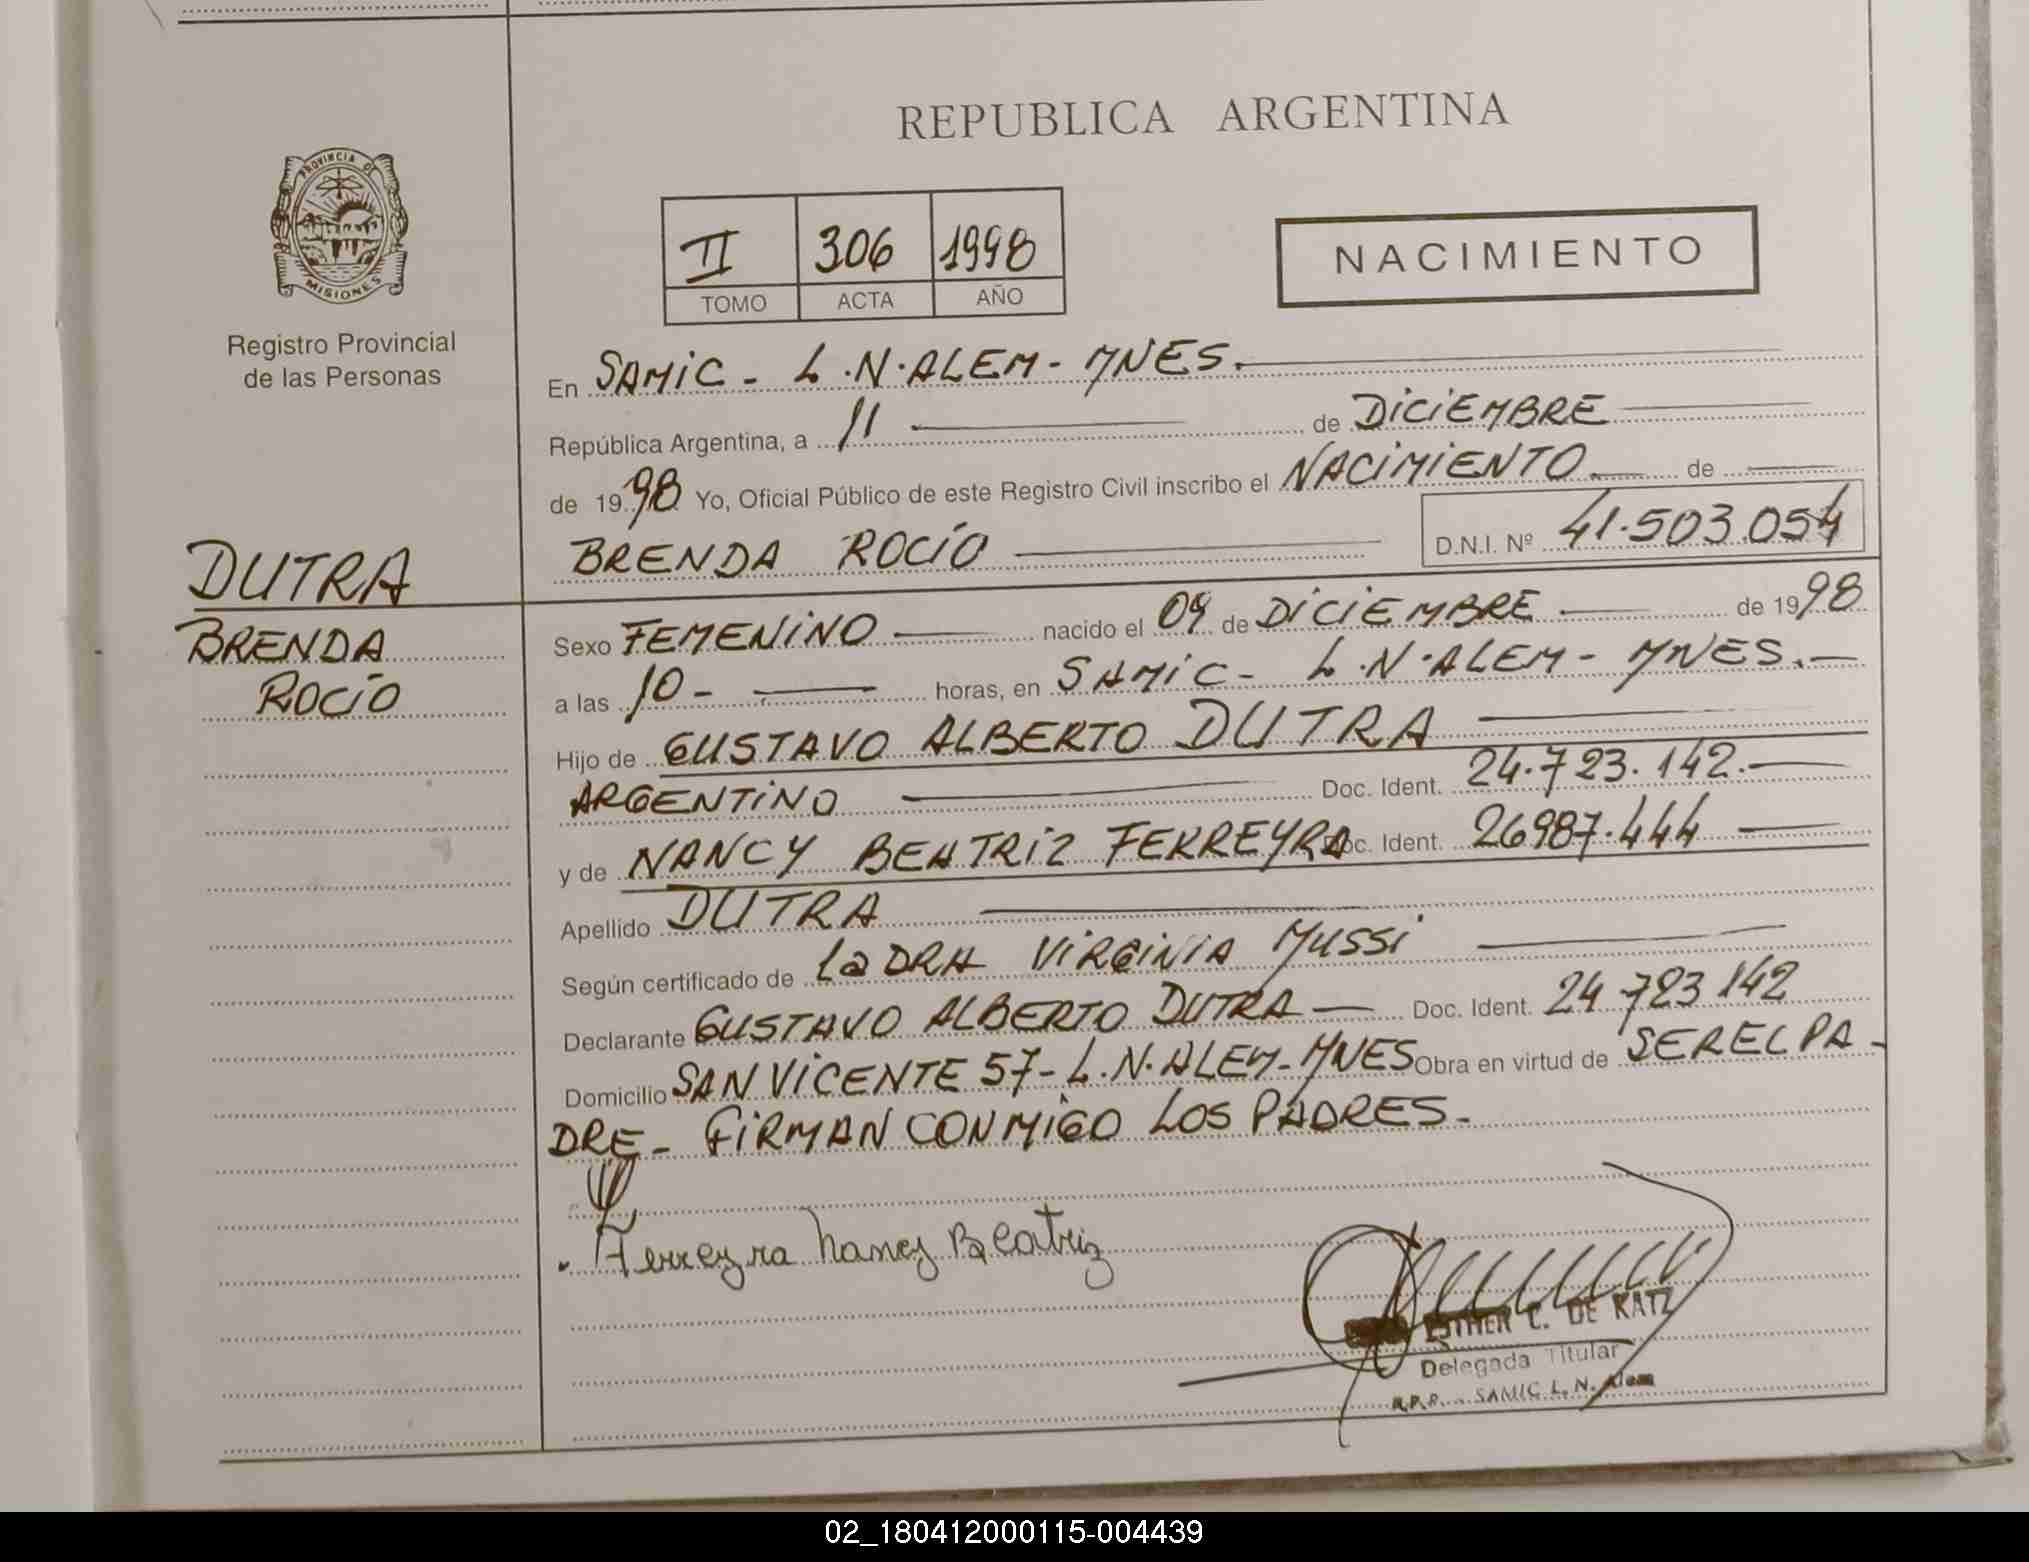 REPUBLICA ARGENTINA
PROVINCIA DE
MISIONES
Registro Provincial
de las Personas
II 306 1998
TOMO ACTA AÑO
NACIMIENTO
En SAMIC - L.N.ALEM - MNES.
República Argentina, a 11 de DICIEMBRE
de 1998 Yo, Oficial Público de este Registro Civil inscribo el NACIMIENTO de
BRENDA ROCÍO D.N.I. Nº 41.503.054
DUTRA
BRENDA
ROCÍO
Sexo FEMENINO nacido el 09 de DICIEMBRE de 1998
a las 10- horas, en SAMIC - L.N.ALEM - MNES.
Hijo de GUSTAVO ALBERTO DUTRA
ARGENTINO Doc. Ident. 24.723.142.
y de NANCY BEATRIZ FERREYRA Doc. Ident. 26987.444
Apellido DUTRA
Según certificado de La DRA VIRGINIA MUSSI
Declarante GUSTAVO ALBERTO DUTRA Doc. Ident. 24 723 142
Domicilio SAN VICENTE 57- L.N.ALEM-MNES Obra en virtud de SEREL PA-
DRE - FIRMAN CONMIGO LOS PADRES-
Ferreyra Nancy Beatriz
ESTHER C. DE KATZ
Delegada Titular
R.P.P. - SAMIC L. N. Alem
02_180412000115-004439